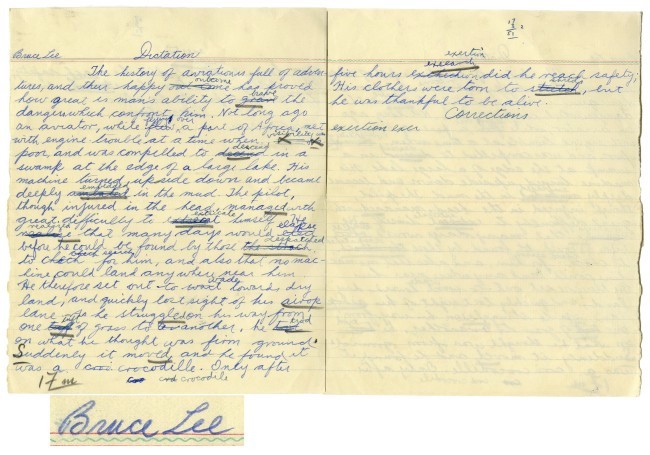 Bruce Lee Dictation
The history of aviation is full of adven
tures, and their happy outcome has proved
how great is mans ability to brave the
dangers wich confront him. Not long ago
an aviator, while flying over a part of Africa, met
with engine trouble at a time when visibility was
poor, and was compelled to descend in a
swamp at the edge of a large lake. His
machine turned upside down and became
deeply embedded in the mud. The pilot,
though injured in the head managed with
great difficulty to extricate himself. He
realized that many days would elapse
before he could be found by those despatched
to search for him, and also that no mac-
hine could land any where near him
He therefore set out to wade towards dry
land, and quickly lost sight of his airop
lane. As he struggled on his way from
one tuft of grass to another, he trod
on what he thought was firm ground.
Suddenly it moved, and he found it
was a crocodille. Only after
17 m crocodile
exertion
five hours did he reach safety,
His clothers were torn to shreds, but
he was thankful to be alive.
Corrections
exertion exer
Bruce Lee